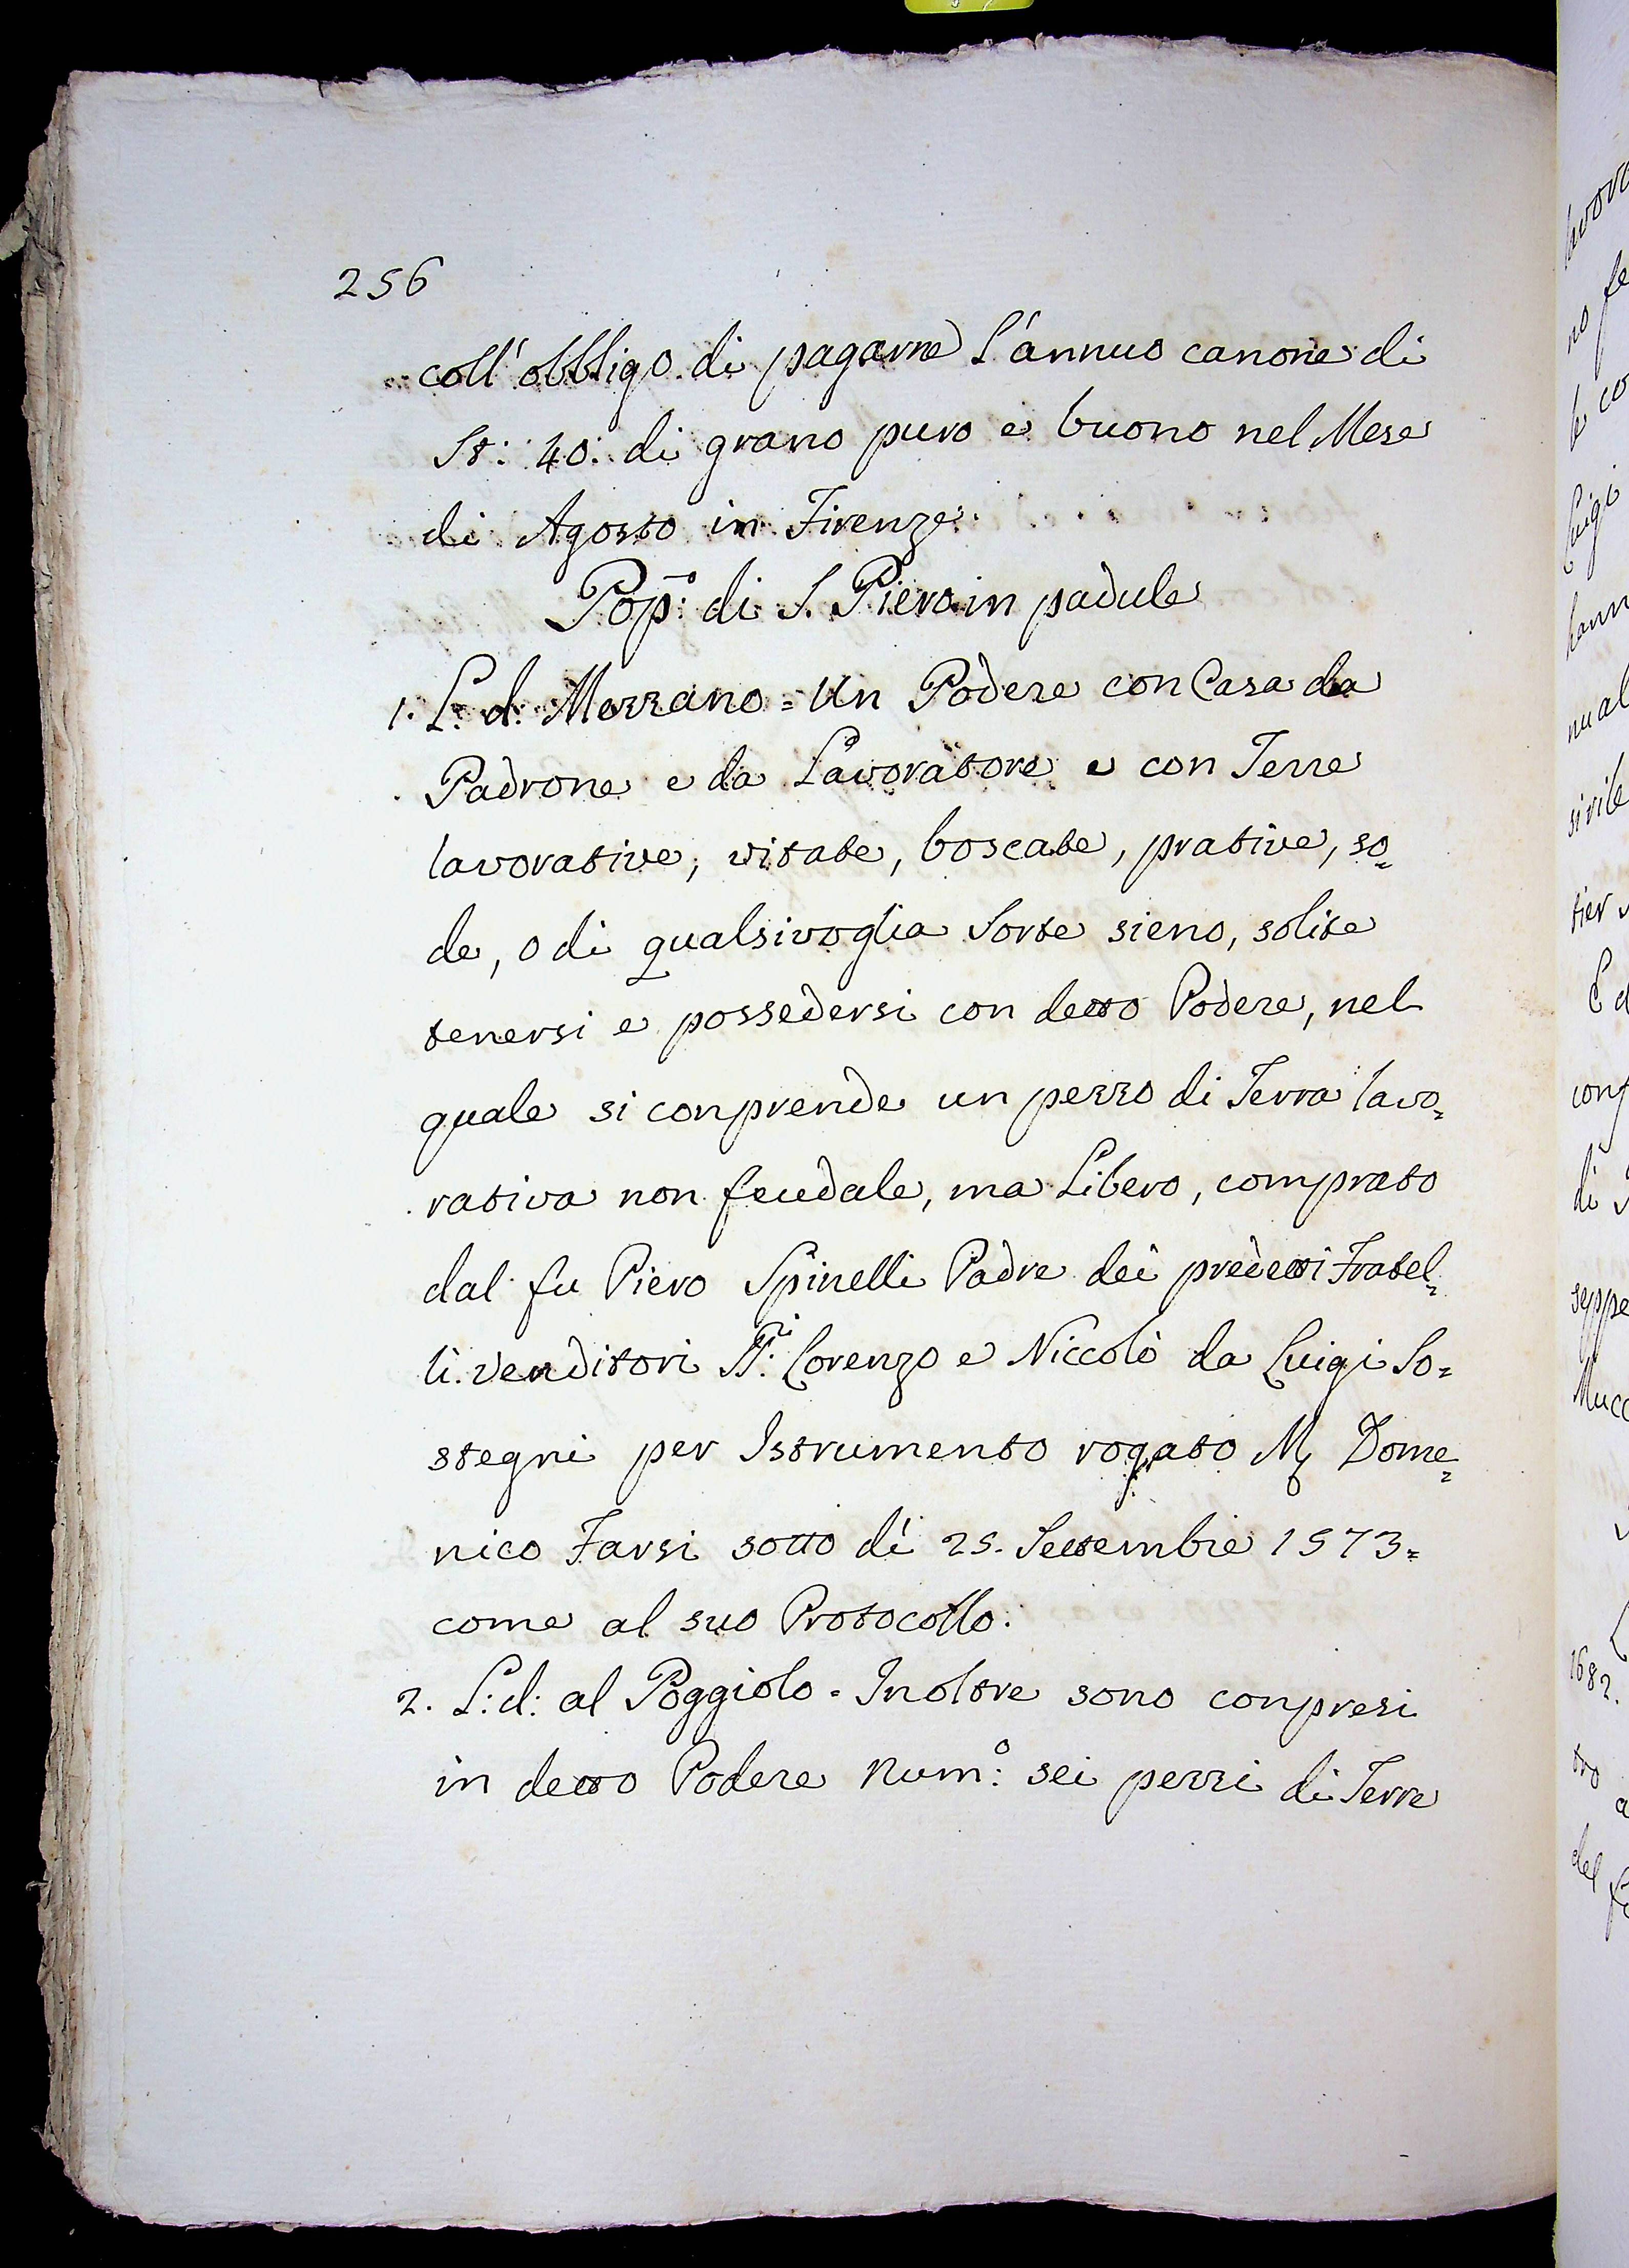 256
coll' obbligo di pagarne l'annuo canone di
St: 40: di grano puro e buono nel Mese
di Agosto in Firenze.
Pop:o di S. Piero in padule
1. L: d: Mezzano = Un Podere con Casa da
Padrone e da Lavoratore e con Terre
lavorative, vitate, boscate, prative, so=
de, o di qualsivoglia Sorte sieno, solite
tenersi e possedersi con detto Podere, nel
quale si conprende un pezzo di Terra lavo=
rativa non feudale, ma Libero, comprato
dal fu Piero Spinelli Padre dei predetti Fratel=
li venditori FF:i Lorenzo e Niccolò da Luigi So=
stegni per Istrumento rogato M Dome=
nico Farsi sotto dì 25. Settembre 1573=
come al suo Protocollo.
2. L: d: al Poggiolo = Inoltre sono conpresi
in detto Podere Num:o sei pezzi di Terre